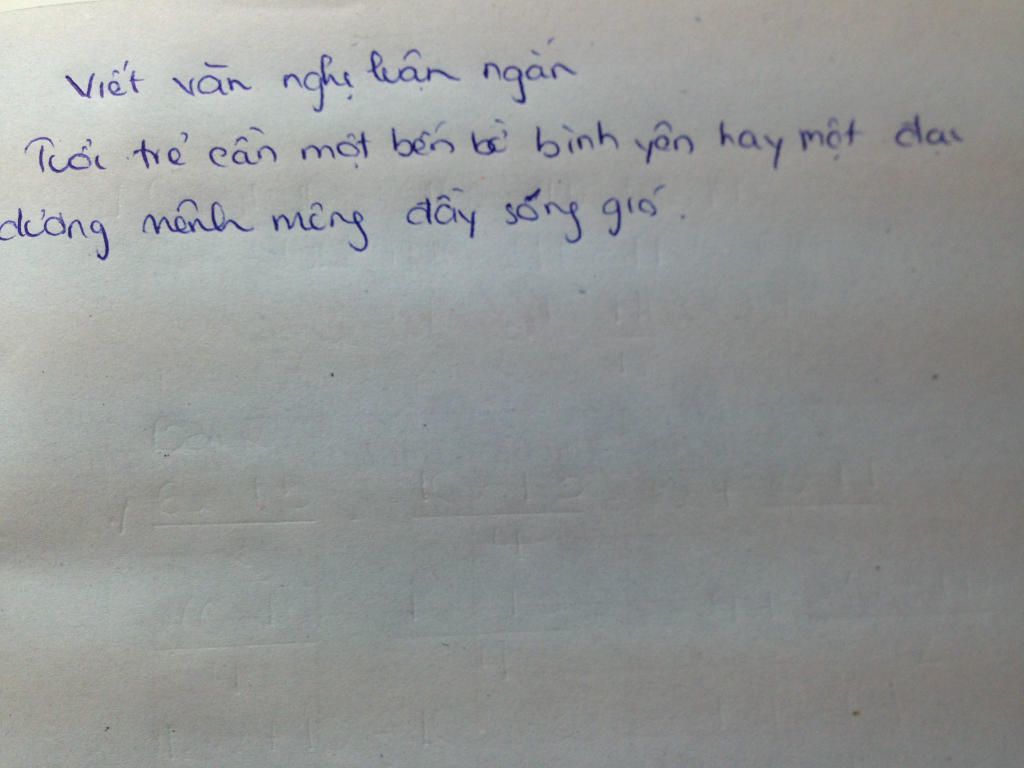 Viết văn nghị luận ngắn
Tuổi trẻ cần một bến bờ bình yên hay một đại
dương mênh mông đầy sống gió.